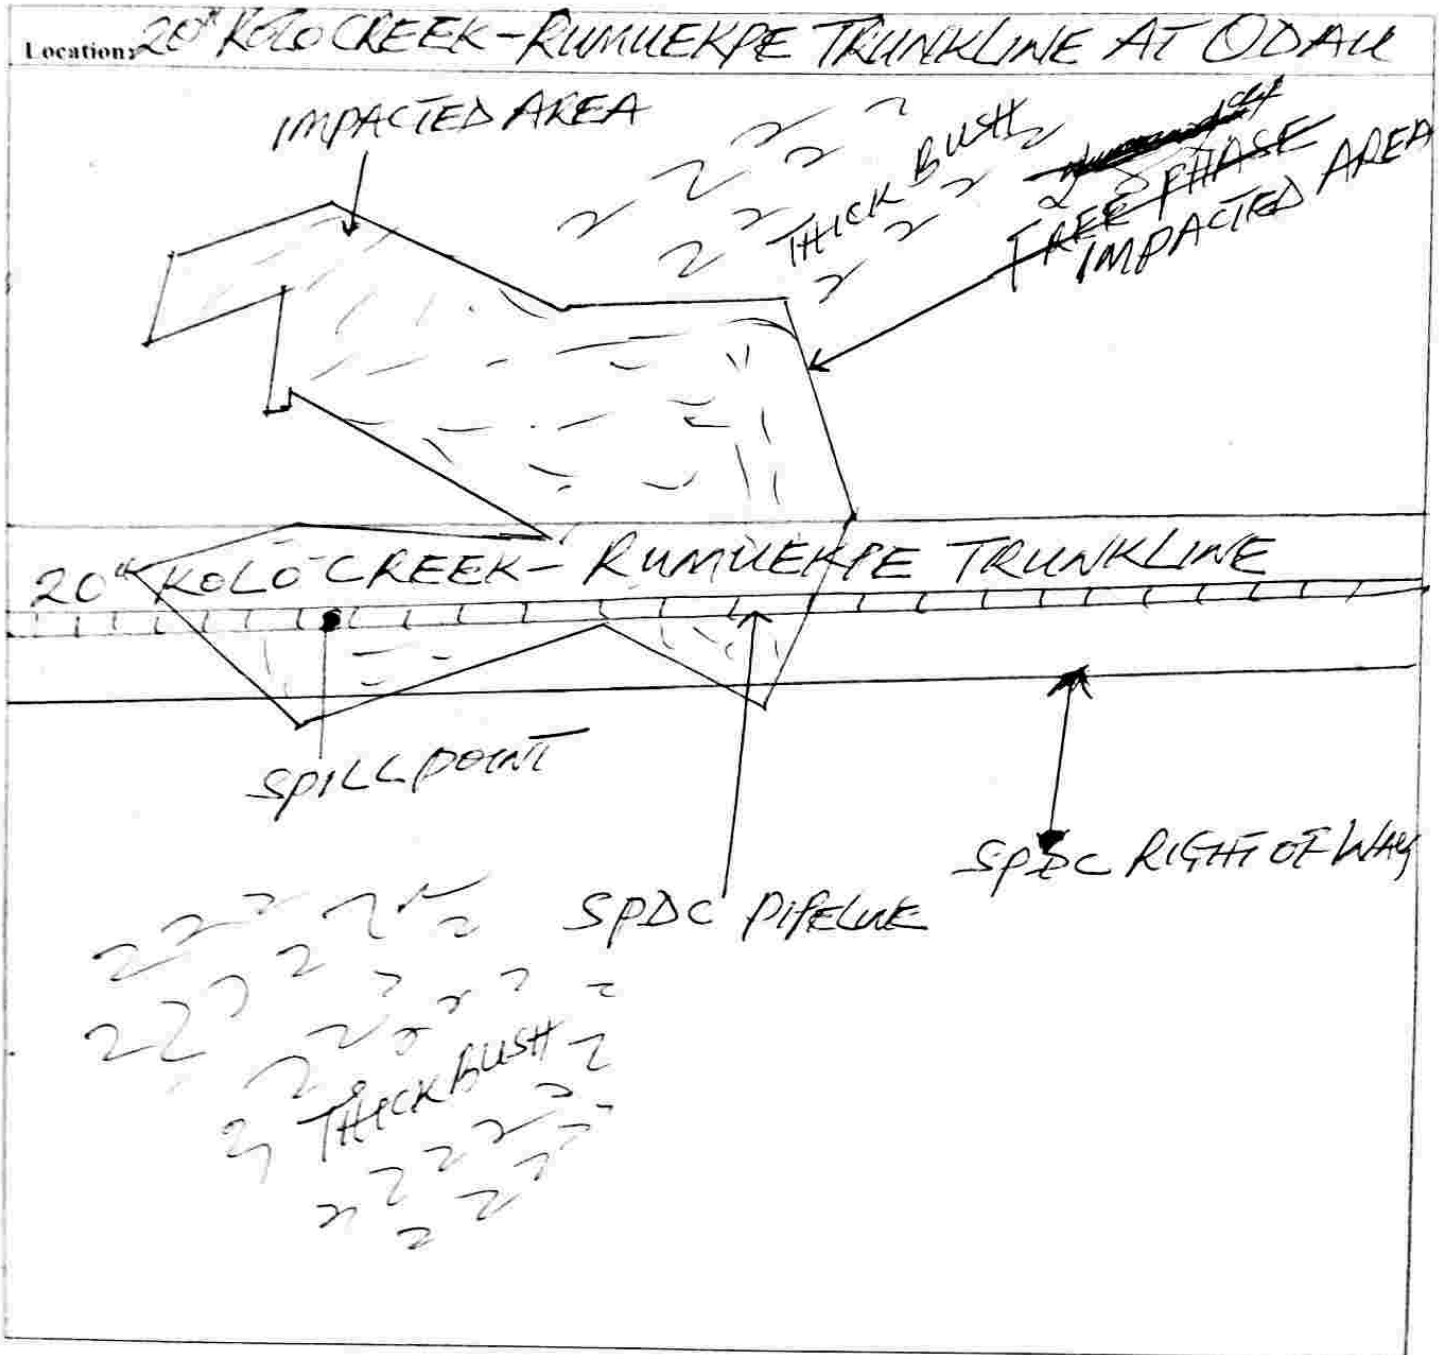 Location: 20" KOLO CREEK-RUMUEKPE TRUNKLINE AT ODAU
IMPACTED AREA
THICK BUSH
FREE PHASE
IMPACTED AREA
20" KOLO CREEK-RUMUEKPE TRUNKLINE
SPILL POINT
SPDC RIGHT OF WAY
SPDC PIPELINE
THICK BUSH